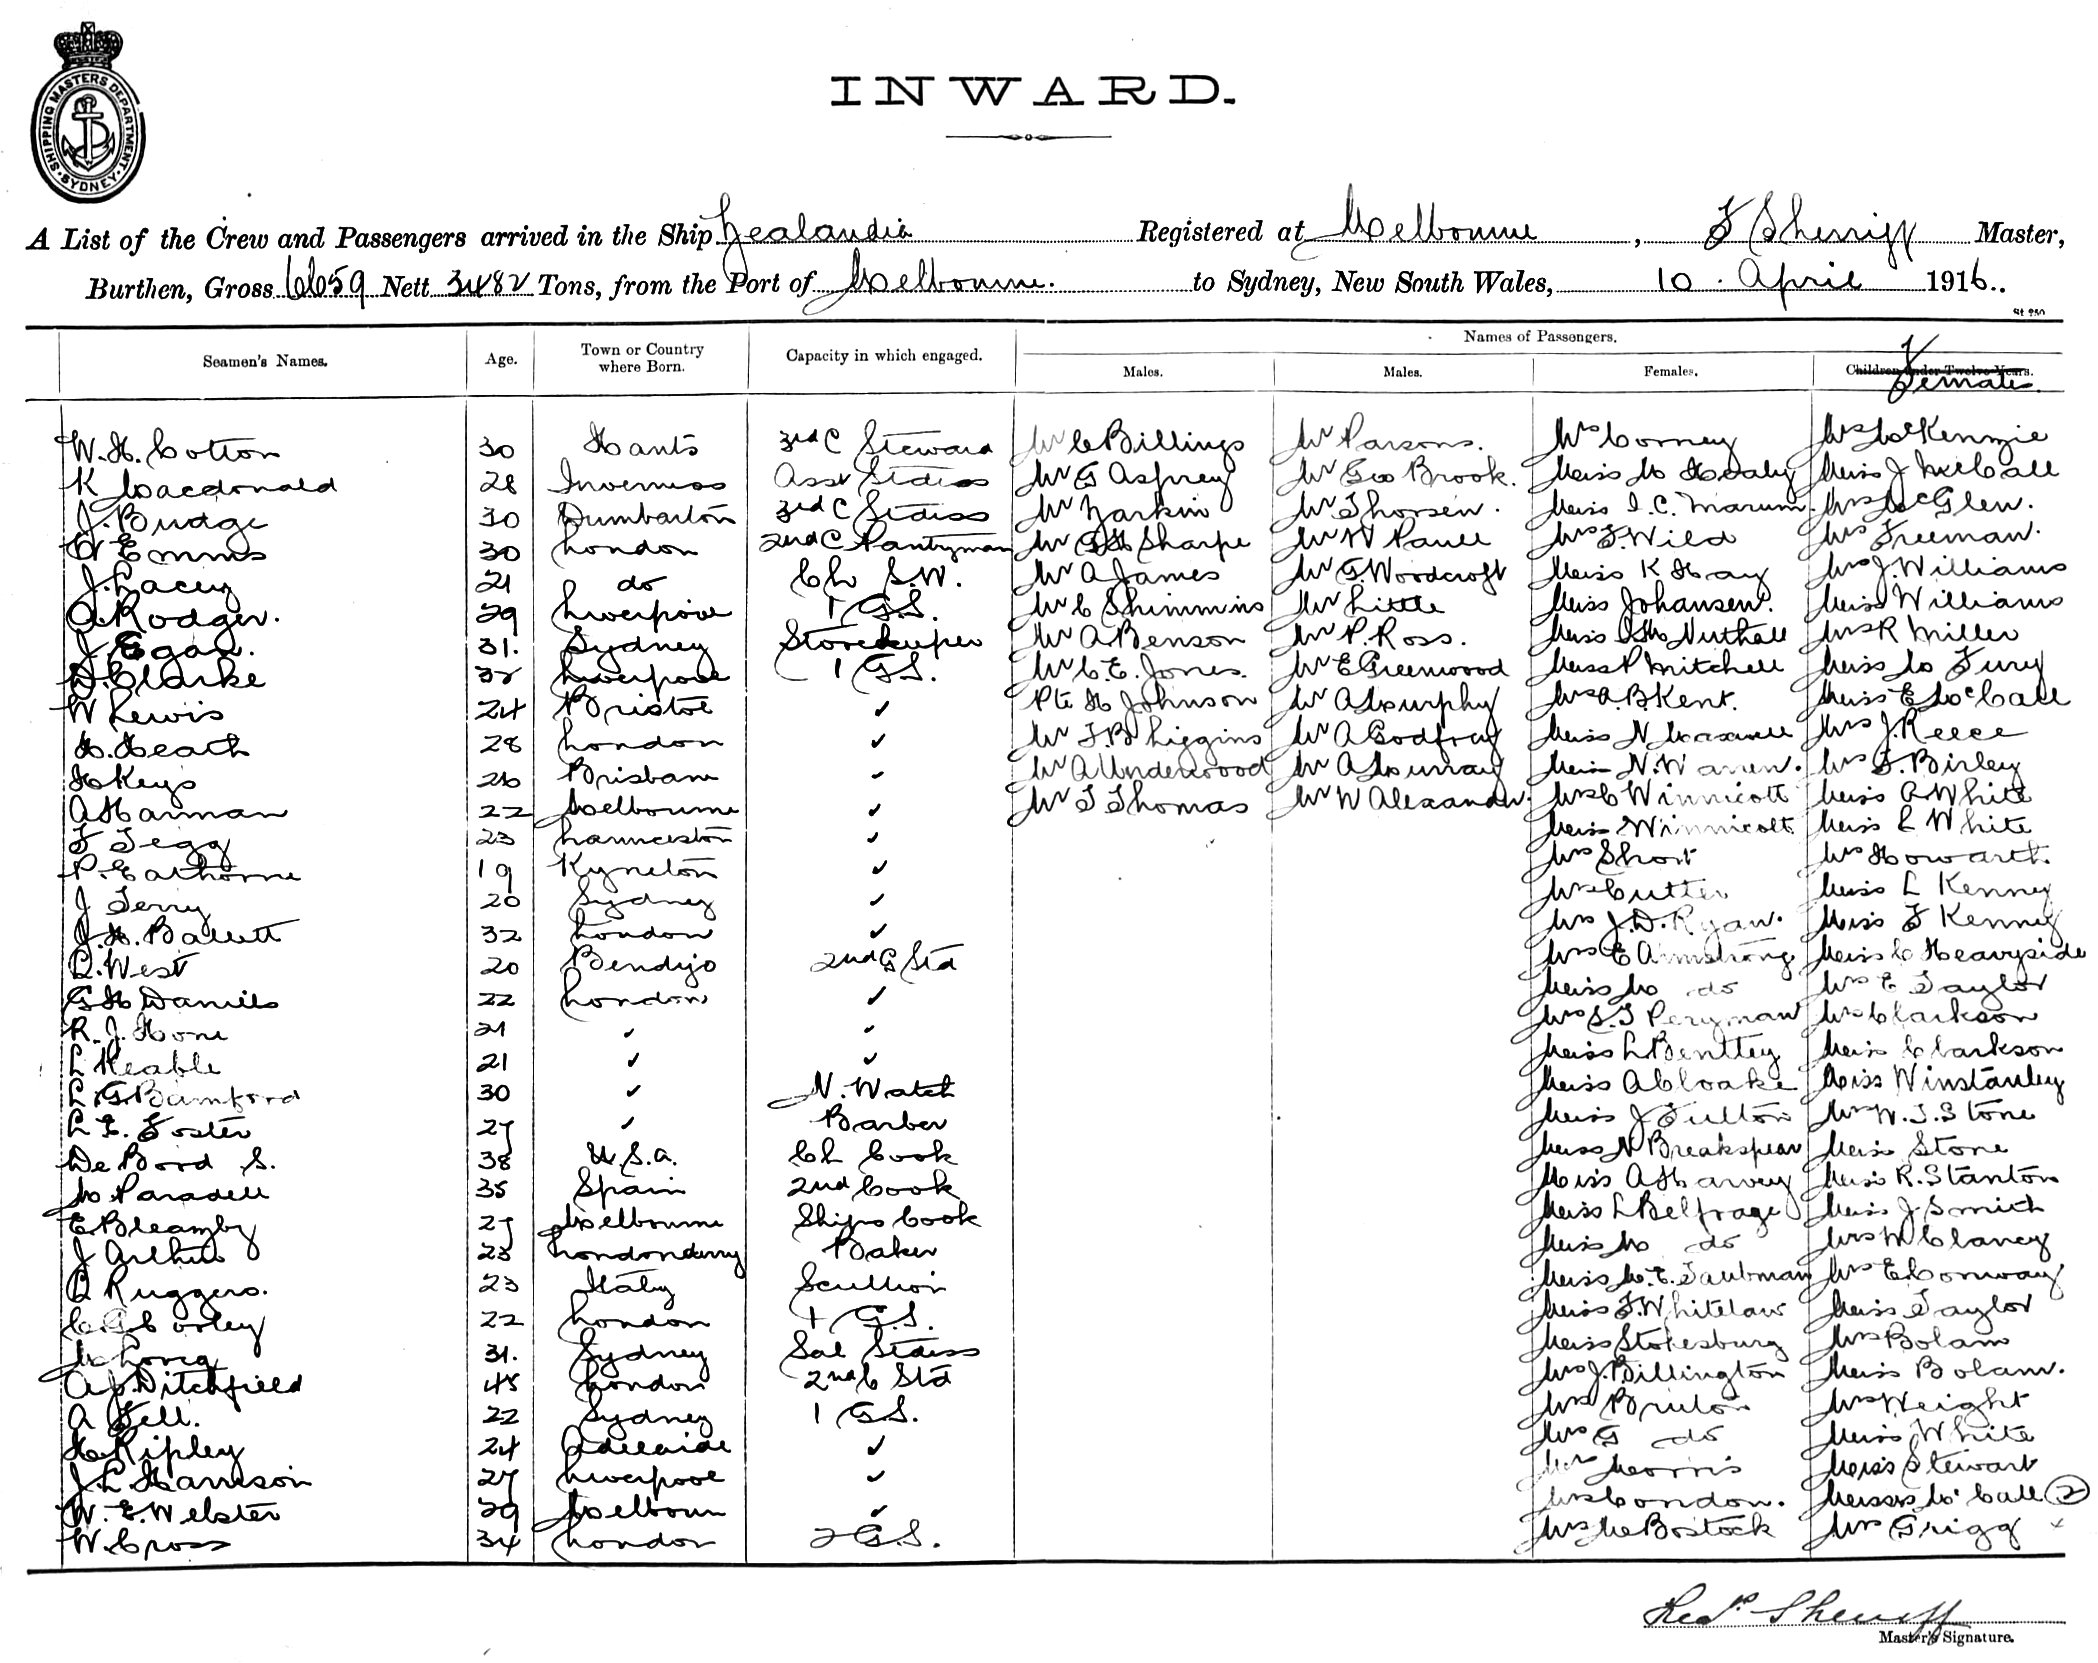 SHIPPING MASTERS DEPARTMENT · SYDNEY ·
INWARD.
A List of the Crew and Passengers arrived in the Ship Zealandia Registered at Melbourne, F Sherriff Master,
Burthen, Gross 6659 Nett 3482 Tons, from the Port of Melbourne. to Sydney, New South Wales, 10. April 1916.
St 250
Names of Passengers.
Seamen's Names. Age. Town or Country where Born. Capacity in which engaged. Males. Males. Females. Children under Twelve Years. Females
W. H. Cotton 30 Hants 3rd C Steward Mr C Billings Mr Parsons. Mrs Corney Mrs McKenzie
K Macdonald 28 Inverness Asst Stdess Mr G Asprey Mr Geo Brook. Miss M Healy Miss J McCall
J. Budge 30 Dumbarton 3rd C Stdess Mr Larkin Mr Thorsen. Miss I. C. Marum. Mrs McGlen.
W Emms 30 London 2nd C Pantryman Mr G H Sharpe Mr W Paull Mrs F. Wild Mrs Freeman.
J. Lacey 21 do Ch S.W. Mr A James Mr G. Woodcroft Miss K Hay Mrs J. Williams
A. Rodger. 29 Liverpool 1 G.S. Mr C Shimmins Mr Little Miss Johansen. Miss Williams
J. Egan. 31. Sydney Storekeeper Mr A Benson Mr P. Ross. Miss Nuthall Mrs R Miller
D. Clarke 32 Liverpool 1 G.S. Mr C. E. Jones. Mr E Greenwood Miss P Mitchell Miss M Fury
W Lewis 24 Bristol ✓ Pte H Johnson Mr A Murphy Mrs A. B Kent. Miss E McCall
H. Heath 28 London ✓ Mr F. B Liggins Mr A Godfrey Miss N Maxwell Mrs J. Reece
H Keys 26 Brisbane ✓ Mr A Underwood Mr A Murray Miss N. Warren. Mrs F. Birley
A Harman 22 Melbourne ✓ Mr T Thomas Mr W Alexander. Mrs C Winnicott Miss A White
F Tegg 23 Launceston ✓ Miss Winnicott Miss L White
P. Eathorne 19 Kyneton ✓ Mrs Short Mrs Howarth
J Terry 20 Sydney ✓ Mrs Cutter Miss L Kenney
J. H. Ballett 32 London ✓ Mrs J. D. Ryan. Miss F Kenney
C. West 20 Bendigo 2nd G Std Mrs E Armstrong Miss C Heavyside
G H Daniels 22 London ✓ Miss M do Mrs E Taylor
R. J. Hone 21 ✓ ✓ Mrs S. T Perryman Mrs Clarkson
L Keable 21 ✓ ✓ Miss L Bentley Miss Clarkson
L. G. Bamford 30 ✓ N. Watch Miss A Cloake Miss Winstanley
L E. Foster 27 ✓ Barber Miss J Fulton Mrs W. J. Stone
De Bord S. 38 U.S.A. Ch Cook Miss N Breakspear Miss Stone
M Paradell 35 Spain 2nd Cook Miss A Harvey Miss R. Stanton
E. Bleamby 27 Melbourne Ships Cook Miss L Belfrage Miss J Smith
J Arthur 23 Londonderry Baker Miss M do Mrs M Clancy
Ruggero. 23 Italy Scullion Miss M. E. Taubman Mrs E Conway
C. G. Corley 22 London 1 G.S. Miss F. Whitelaw Miss Taylor
31. Sydney Sal Stdess Miss Stokesbury Mrs Bolam
A. J. Ditchfield 45 London 2nd C Std Mrs J. Billington Miss Bolam.
A Fell. 22 Sydney 1 G.S. Mrs Bruton Mrs Weight
H. Ripley 24 Adelaide ✓ Mrs G do Miss White
J. L Harrison 27 Liverpool ✓ Mrs Morris Miss Stewart
W. E. Webster 29 Melbourn ✓ Mrs Condon. Misses McCall (2)
W. Cross 34 London 2 G.S. Mrs Bostock Mrs Grigg
Fredk Sherriff
Master's Signature.